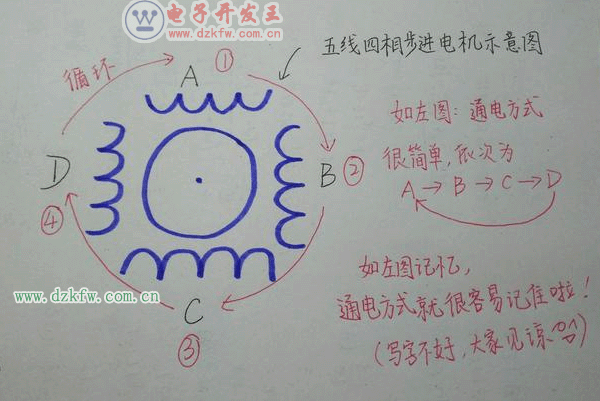 电子开发王
www.dzkfw.com.cn
循环
A
①
五线四相步进电机示意图
B
②
C
③
D
④
如左图:通电方式
很简单,依次为
A→B→C→D
如左图记忆,
通电方式就很容易记住啦!
(写字不好,大家见谅)
www.dzkfw.com.cn